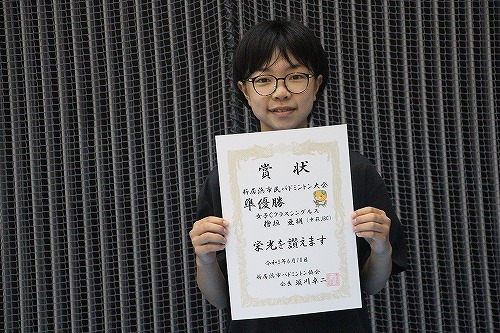 賞状
新居浜市民バドミントン大会
準優勝
女子Cクラスシングルス
檜垣
栄光を讃えます
新居浜市バドミントン協会
会長